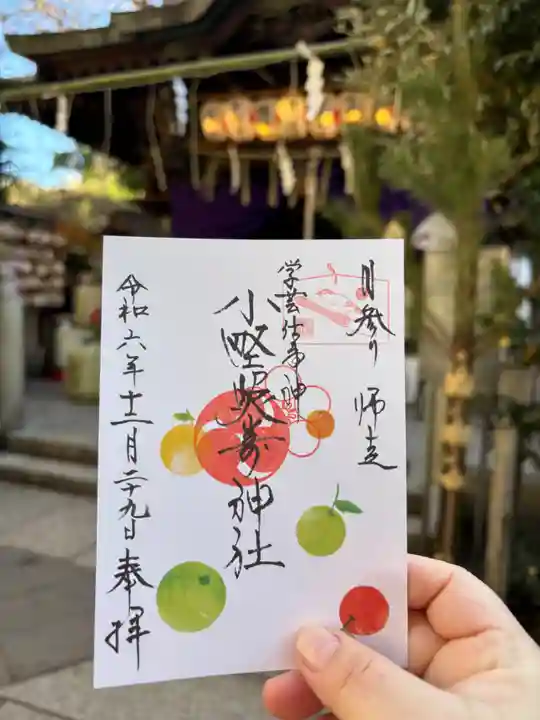 月参り 師走
学芸仕事神
小野照崎神社
令和六年十二月二十九日 奉拝